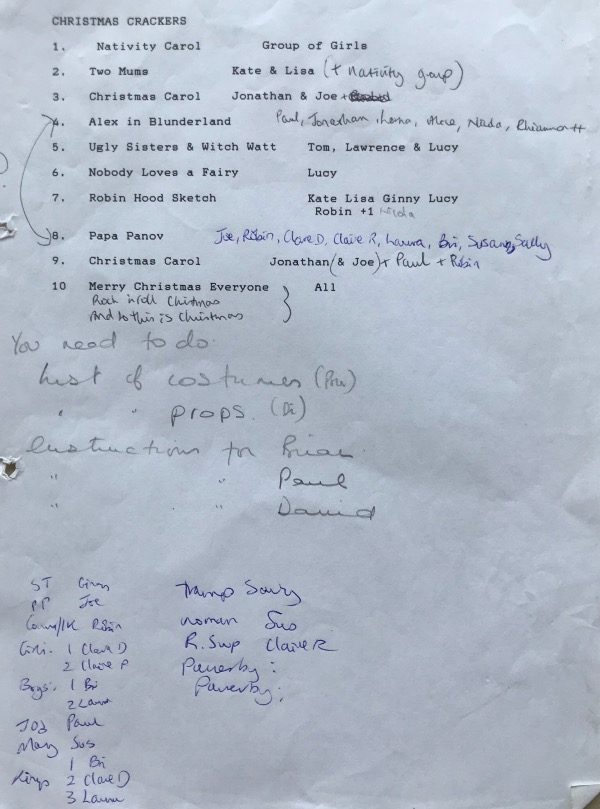 CHRISTMAS CRACKERS
1. Nativity Carol Group of Girls
2. Two Mums Kate & Lisa (+ nativity group)
3. Christmas Carol Jonathan & Joe +
4. Alex in Blunderland Paul, Jonathan, Lorna, Alexe, Nilda, Rhiannon H
5. Ugly Sisters & Witch Watt Tom, Lawrence & Lucy
6. Nobody Loves a Fairy Lucy
7. Robin Hood Sketch Kate Lisa Ginny Lucy
Robin +1 Nilda
8. Papa Panov Joe, Robin, Clare D, Claire R, Laura, Bri, Susang, Sally
9. Christmas Carol Jonathan (& Joe) + Paul + Robin
10 Merry Christmas Everyone All
Rock 'n roll Christmas
And so this is Christmas
You need to do.
List of costumes (Pru)
" " props. (Di)
Instructions for Brian
" " Paul
" " David
ST Ginny
PP Joe
Robin
Girls. 1 Clare D
2 Claire R
Boys. 1 Bri
2 Laura
Jos Paul
Mary Sus
1 Bri
Kings 2 Clare D
3 Laura
Tramp Sally
woman Sus
R. Swp Claire R
Passerby:
Passerby: